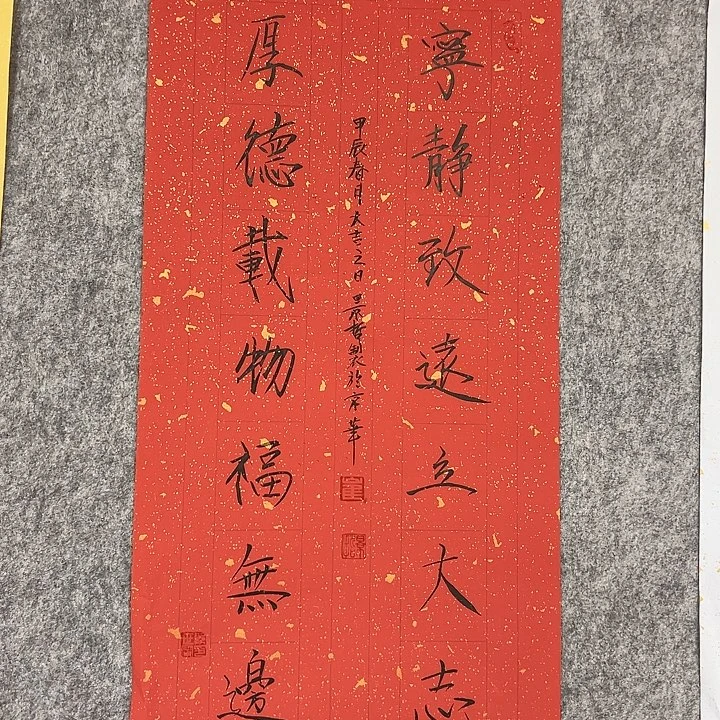 寧靜致遠立大志
厚德載物福無邊
甲辰春月大吉之日
製於京華